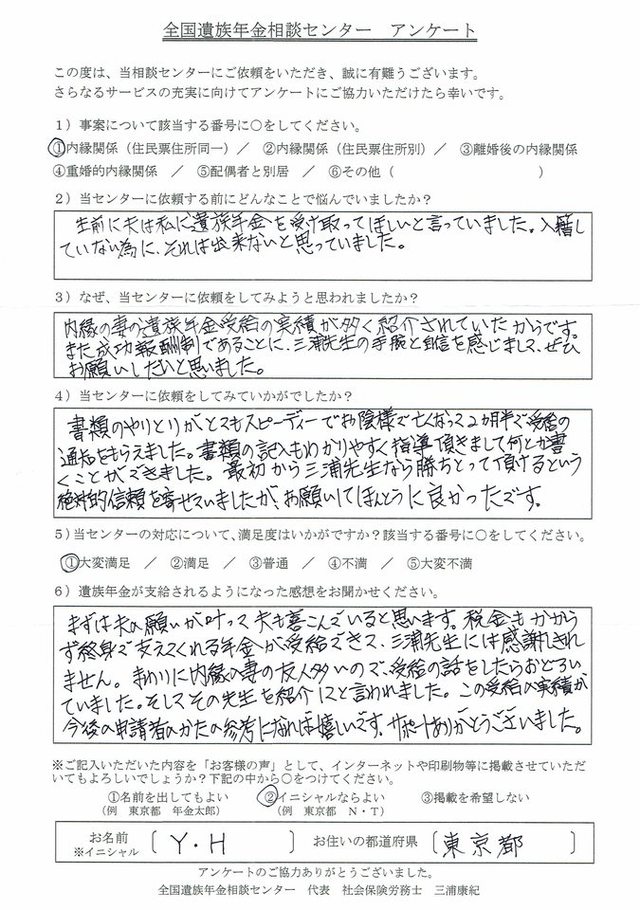 全国遺族年金相談センター アンケート
この度は、当相談センターにご依頼をいただき、誠に有難うございます。
さらなるサービスの充実に向けてアンケートにご協力いただけたら幸いです。
1）事案について該当する番号に○をしてください。
①内縁関係（住民票住所同一）／ ②内縁関係（住民票住所別）／ ③離婚後の内縁関係
④重婚的内縁関係 ／ ⑤配偶者と別居 ／ ⑥その他（ ）
2）当センターに依頼する前にどんなことで悩んでいましたか？
生前に夫は私に遺族年金を受け取ってほしいと言っていました。入籍し
ていない為に、それは出来ないと思っていました。
3）なぜ、当センターに依頼をしてみようと思われましたか？
内縁の妻の遺族年金受給の実績が多く紹介されていたからです。
また成功報酬制であることに、三浦先生の手腕と自信を感じまして、ぜひ
お願いしたいと思いました。
4）当センターに依頼をしてみていかがでしたか？
書類のやりとりがとてもスピーディーでお陰様で亡くなって2カ月半で受給の
通知をもらえました。書類の記入もわかりやすく指導頂きまして何とか書
くことができました。最初から三浦先生なら勝ちとって頂けるという
絶対的信頼を寄せていましたが、お願いしてほんとうに良かったです。
5）当センターの対応について、満足度はいかがですか？該当する番号に○をしてください。
①大変満足 ／ ②満足 ／ ③普通 ／ ④不満 ／ ⑤大変不満
6）遺族年金が支給されるようになった感想をお聞かせください。
まずは夫の願いが叶って夫も喜こんでいると思います。税金もかから
ず終身で支えてくれる年金が受給できて、三浦先生には感謝しきれ
ません。まわりに内縁の妻の友人多いので、受給の話をしたらおどろい
ていました。そしてその先生を紹介してと言われました。この受給の実績が
今後の申請者のかたの参考になれば嬉しいです。サポートありがとうございました。
※ご記入いただいた内容を「お客様の声」として、インターネットや印刷物等に掲載させていただ
いてもよろしいでしょうか？下記の中から○をつけてください。
①名前を出してもよい ②イニシャルならよい ③掲載を希望しない
（例 東京都 年金太郎） （例 東京都 N・T）
お名前 ※イニシャル 〔 Y・H 〕 お住いの都道府県 〔 東京都 〕
アンケートのご協力ありがとうございました。
全国遺族年金相談センター 代表 社会保険労務士 三浦康紀